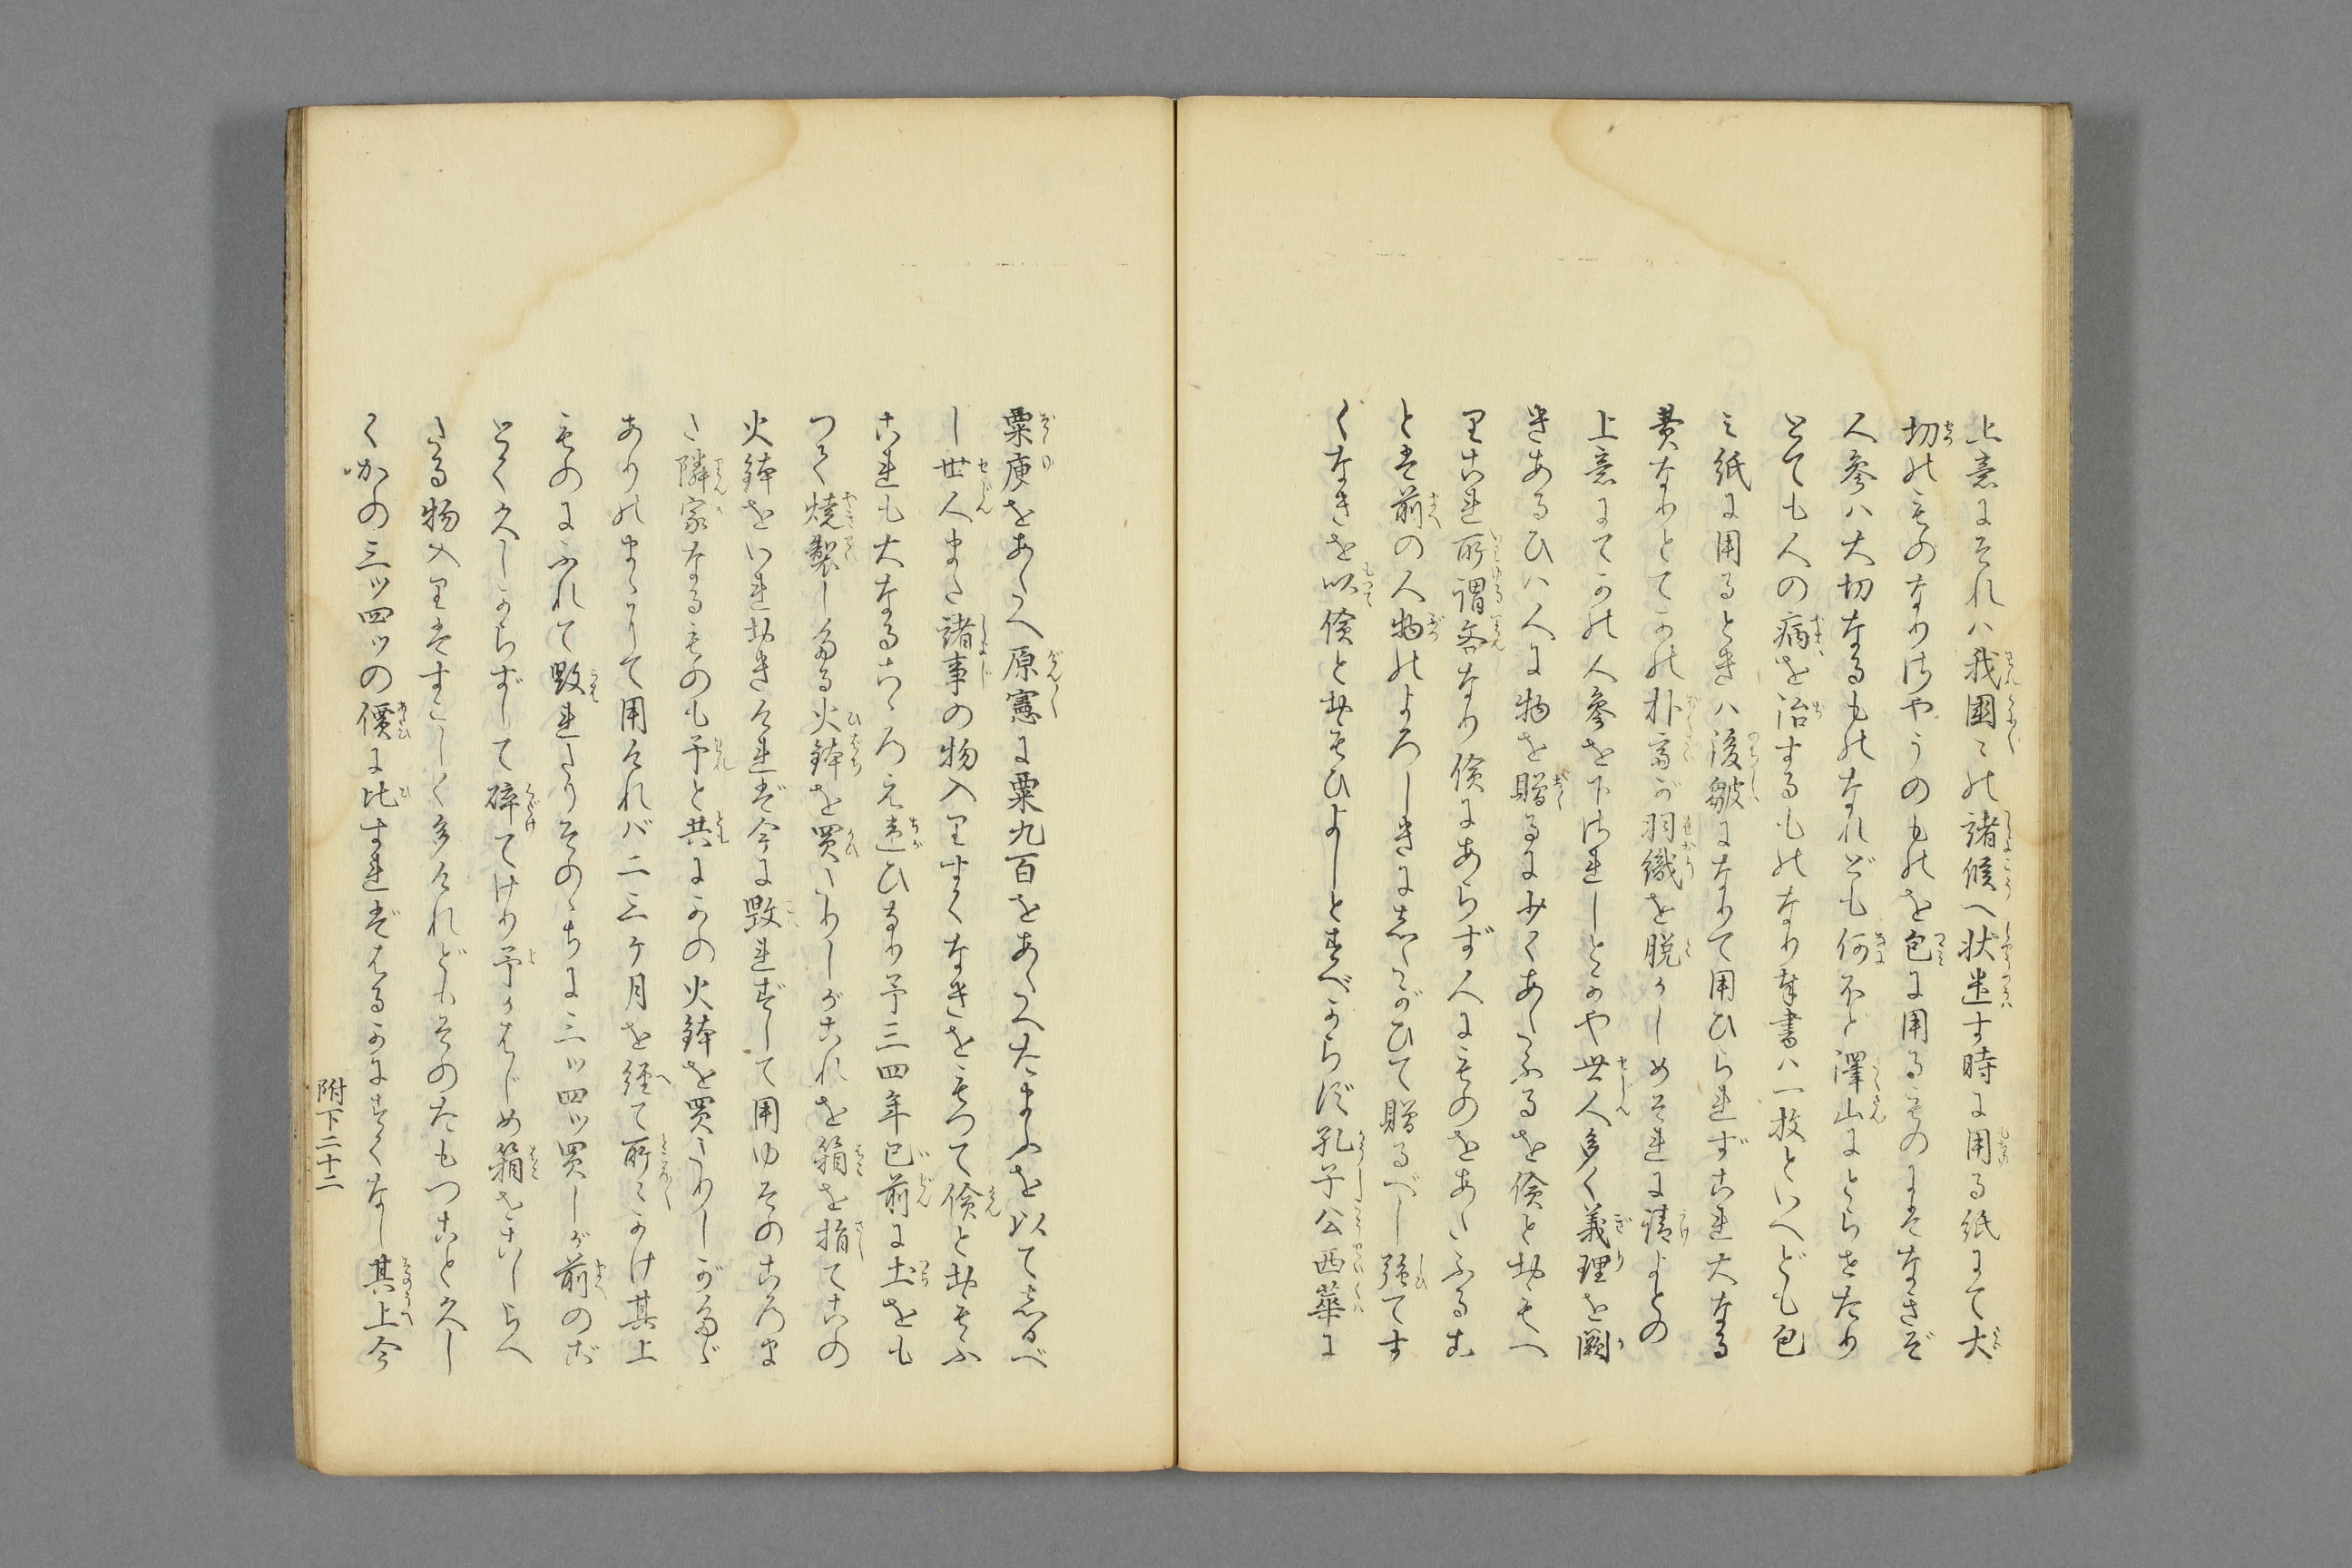 上意にそれハ我國〻の諸候へ状遣す時に用る紙にて大
切のものなり汝やうのものを包に用るものにはなきぞ
人参ハ大切なるものなれども何ほど澤山にとらせたり
とても人の病を治するものなり奉書ハ一枚といへども包
ミ紙に用るときハ後皺になりて用ひられずこれ大なる
費なりとてかの朴斎が羽織を脱かしめそれに請よとの
上意にてかの人参を下されしとかや世人多く義理を闕
きあるひハ人に物を贈るに少くあたふるを倹と思もへ
りこれ所謂吝なり倹にあらず人にものをあたふるこ
とは前の人物のよろしきにしたがひて贈るべし強てす
くなきを以倹と思もひよしとすべからず孔子公西華に
粟庾をあたへ原憲に粟九百をあたへたまふを以てしるべ
し世人また諸事の物入りすくなきをもつて倹と思もふ
これも大なるこゝろえ違ひなり予三四年已前に土をも
つて焼製したる火鉢を買たりしがこれを箱を指てこの
火鉢をいれおきければ今に毀れずして用ゆそのころま
た隣家なるものも予と共にかの火鉢を買たりしがたゞ
ありのまゝにて用ければ二三ヶ月を経て所〻かけ其上
ものにふれて毀れたりそのゝちに三ッ四ッ買しが前のご
とく久しからずして碎てけり予がはじめ箱をこしらへ
たる物入りはすこしく多けれどもそのたもつこと久し
くかの三ッ四ッの價に比すればはるかにすくなし其上今
附下二十二